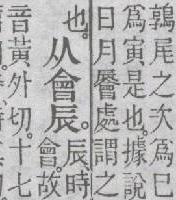 鶉尾之次爲巳
爲寅是也。據說
日月處謂之
也。从會辰。辰、時
會。故
音黃外切。十七